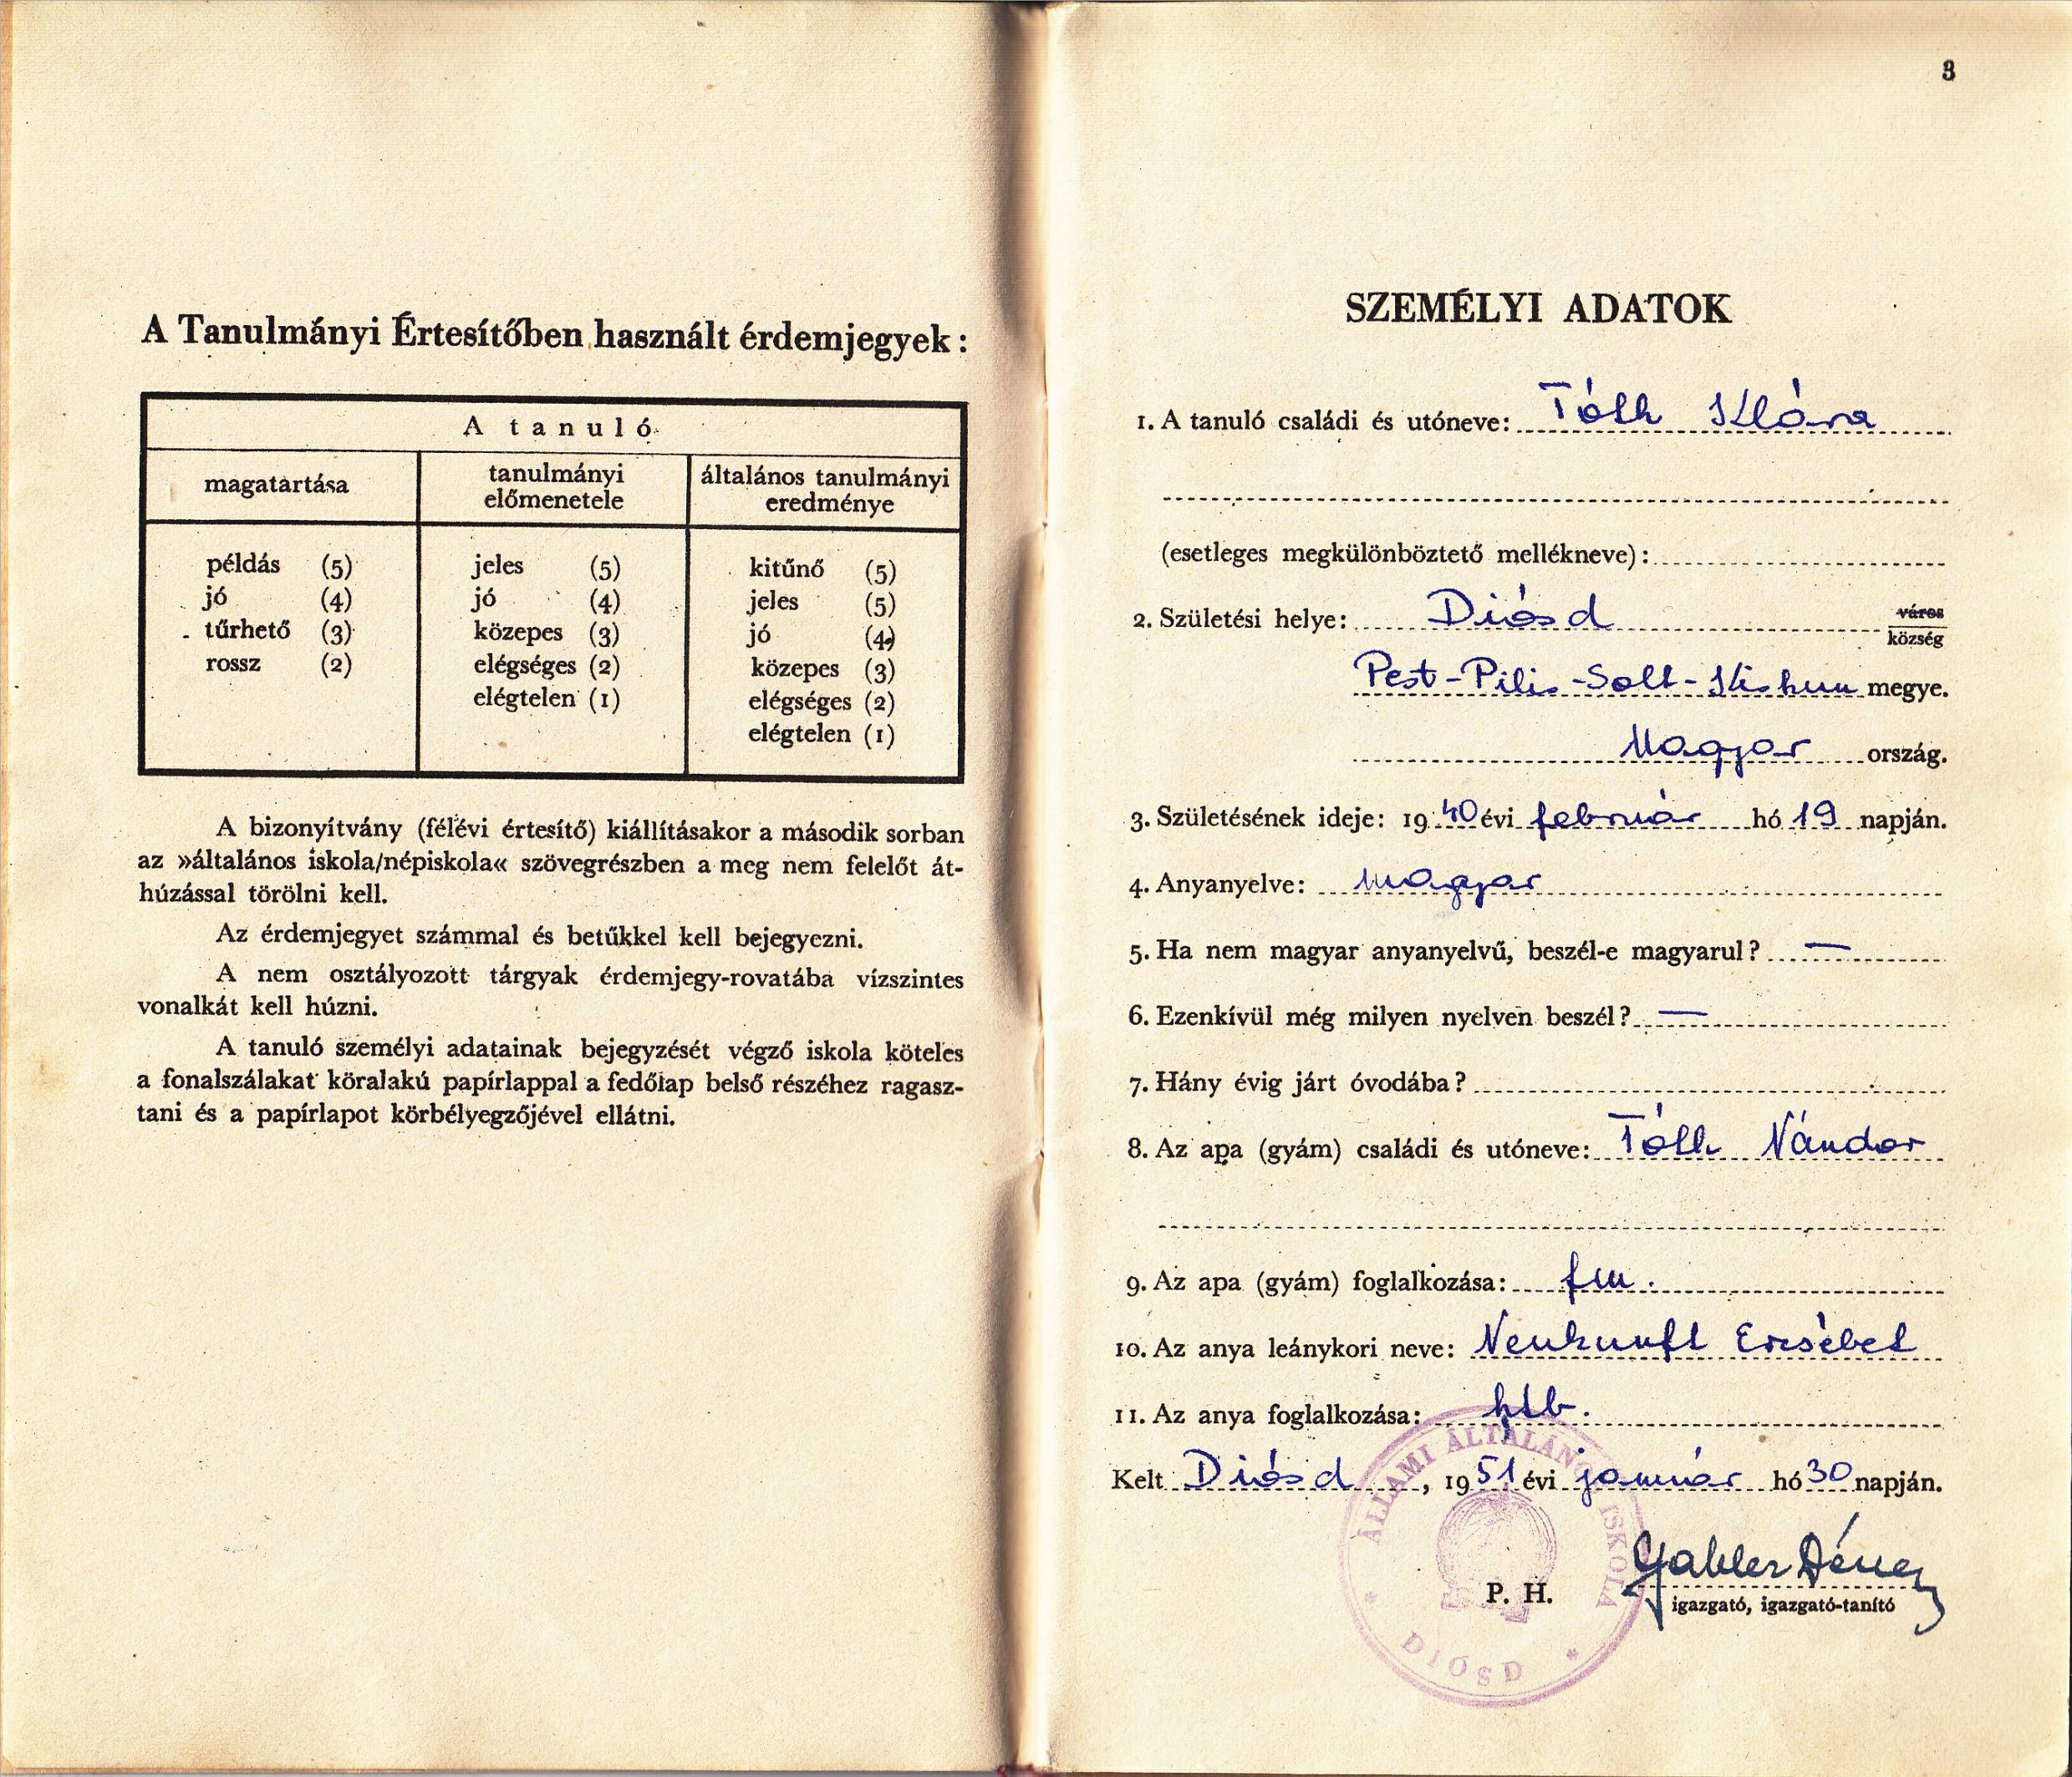 A Tanulmányi Értesítőben használt érdemjegyek :
A tanuló
magatartása
tanulmányi
előmenetele
általános tanulmányi
eredménye
példás (5)
jó (4)
tűrhető (3)
rossz (2)
jeles (5)
jó (4)
közepes (3)
elégséges (2)
elégtelen (1)
kitűnő (5)
jeles (5)
jó (4)
közepes (3)
elégséges (2)
elégtelen (1)
A bizonyítvány (félévi értesítő) kiállításakor a második sorban
az »általános iskola/népiskola« szövegrészben a meg nem felelőt át-
húzással törölni kell.
Az érdemjegyet számmal és betűkkel kell bejegyezni.
A nem osztályozott tárgyak érdemjegy-rovatába vízszintes
vonalkát kell húzni.
A tanuló személyi adatainak bejegyzését végző iskola köteles
a fonalszálakat köralakú papírlappal a fedőlap belső részéhez ragasz-
tani és a papírlapot körbélyegzőjével ellátni.
3
SZEMÉLYI ADATOK
1. A tanuló családi és utóneve: Tóth Klára
(esetleges megkülönböztető mellékneve) :
2. Születési helye: Diósd város
község
Pest-Pilis-Solt-Kiskun megye.
Magyar ország.
3. Születésének ideje: 1940 évi február hó 19 napján.
4. Anyanyelve: magyar
5. Ha nem magyar anyanyelvű, beszél-e magyarul? —
6. Ezenkívül még milyen nyelven beszél? —
7. Hány évig járt óvodába?
8. Az apa (gyám) családi és utóneve: Tóth Nándor
9. Az apa (gyám) foglalkozása: fm.
10. Az anya leánykori neve: Neukunft Erzsébet
11. Az anya foglalkozása: htb.
Kelt Diósd, 1951 évi január hó 30 napján.
ÁLLAMI ÁLTALÁNOS ISKOLA
* DIÓSD *
P. H.
Gabler Dénes
igazgató, igazgató-tanító